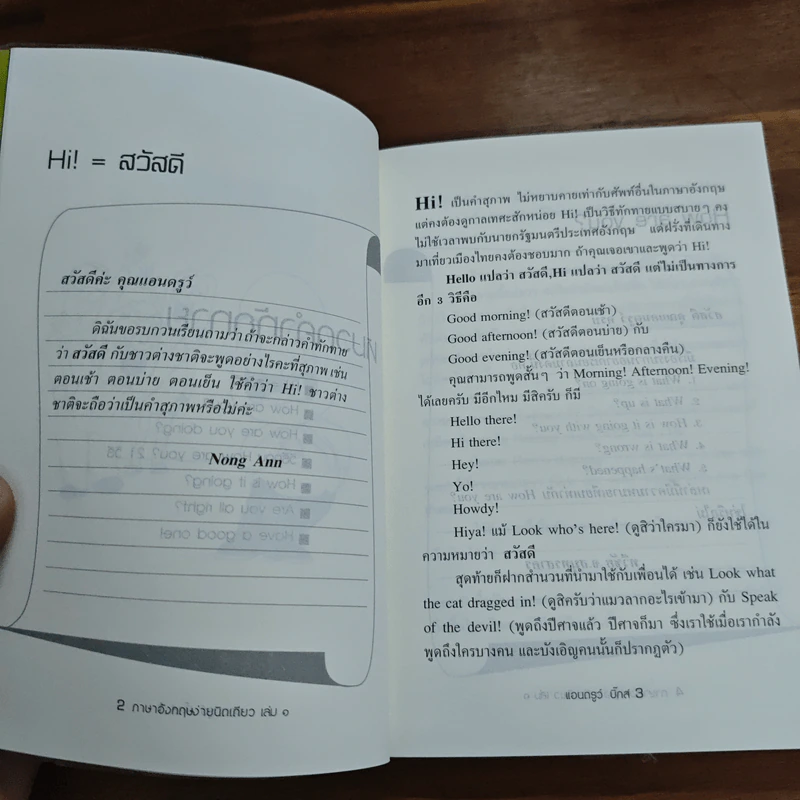 Hi! = สวัสดี
สวัสดีค่ะ คุณแอนดรูว์
ดิฉันขอรบกวนเรียนถามว่า ถ้าจะกล่าวคำทักทาย
ว่า สวัสดี กับชาวต่างชาติจะพูดอย่างไรคะที่สุภาพ เช่น
ตอนเช้า ตอนบ่าย ตอนเย็น ใช้คำว่า Hi! ชาวต่าง
ชาติจะถือว่าเป็นคำสุภาพหรือไม่ค่ะ
Nong Ann
2 ภาษาอังกฤษง่ายนิดเดียว เล่ม ๑
Hi! เป็นคำสุภาพ ไม่หยาบคายเท่ากับศัพท์อื่นในภาษาอังกฤษ
แต่คงต้องดูกาลเทศะสักหน่อย Hi! เป็นวิธีทักทายแบบสบายๆ คง
ไม่ใช้เวลาพบกับนายกรัฐมนตรีประเทศอังกฤษ แต่ฝรั่งที่เดินทาง
มาเที่ยวเมืองไทยคงต้องชอบมาก ถ้าคุณเจอเขาและพูดว่า Hi!
Hello แปลว่า สวัสดี,Hi แปลว่า สวัสดี แต่ไม่เป็นทางการ
อีก 3 วิธีคือ
Good morning! (สวัสดีตอนเช้า)
Good afternoon! (สวัสดีตอนบ่าย) กับ
Good evening! (สวัสดีตอนเย็นหรือกลางคืน)
คุณสามารถพูดสั้นๆ ว่า Morning! Afternoon! Evening!
ได้เลยครับ มีอีกไหม มีสิครับ ก็มี
Hello there!
Hi there!
Hey!
Yo!
Howdy!
Hiya! แม้ Look who's here! (ดูสิว่าใครมา) ก็ยังใช้ได้ใน
ความหมายว่า สวัสดี
สุดท้ายก็ฝากสำนวนที่นำมาใช้กับเพื่อนได้ เช่น Look what
the cat dragged in! (ดูสิครับว่าแมวลากอะไรเข้ามา) กับ Speak
of the devil! (พูดถึงปีศาจแล้ว ปีศาจก็มา ซึ่งเราใช้เมื่อเรากำลัง
พูดถึงใครบางคน และบังเอิญคนนั้นก็ปรากฏตัว)
แอนดรูว์ บิ๊กส์ 3